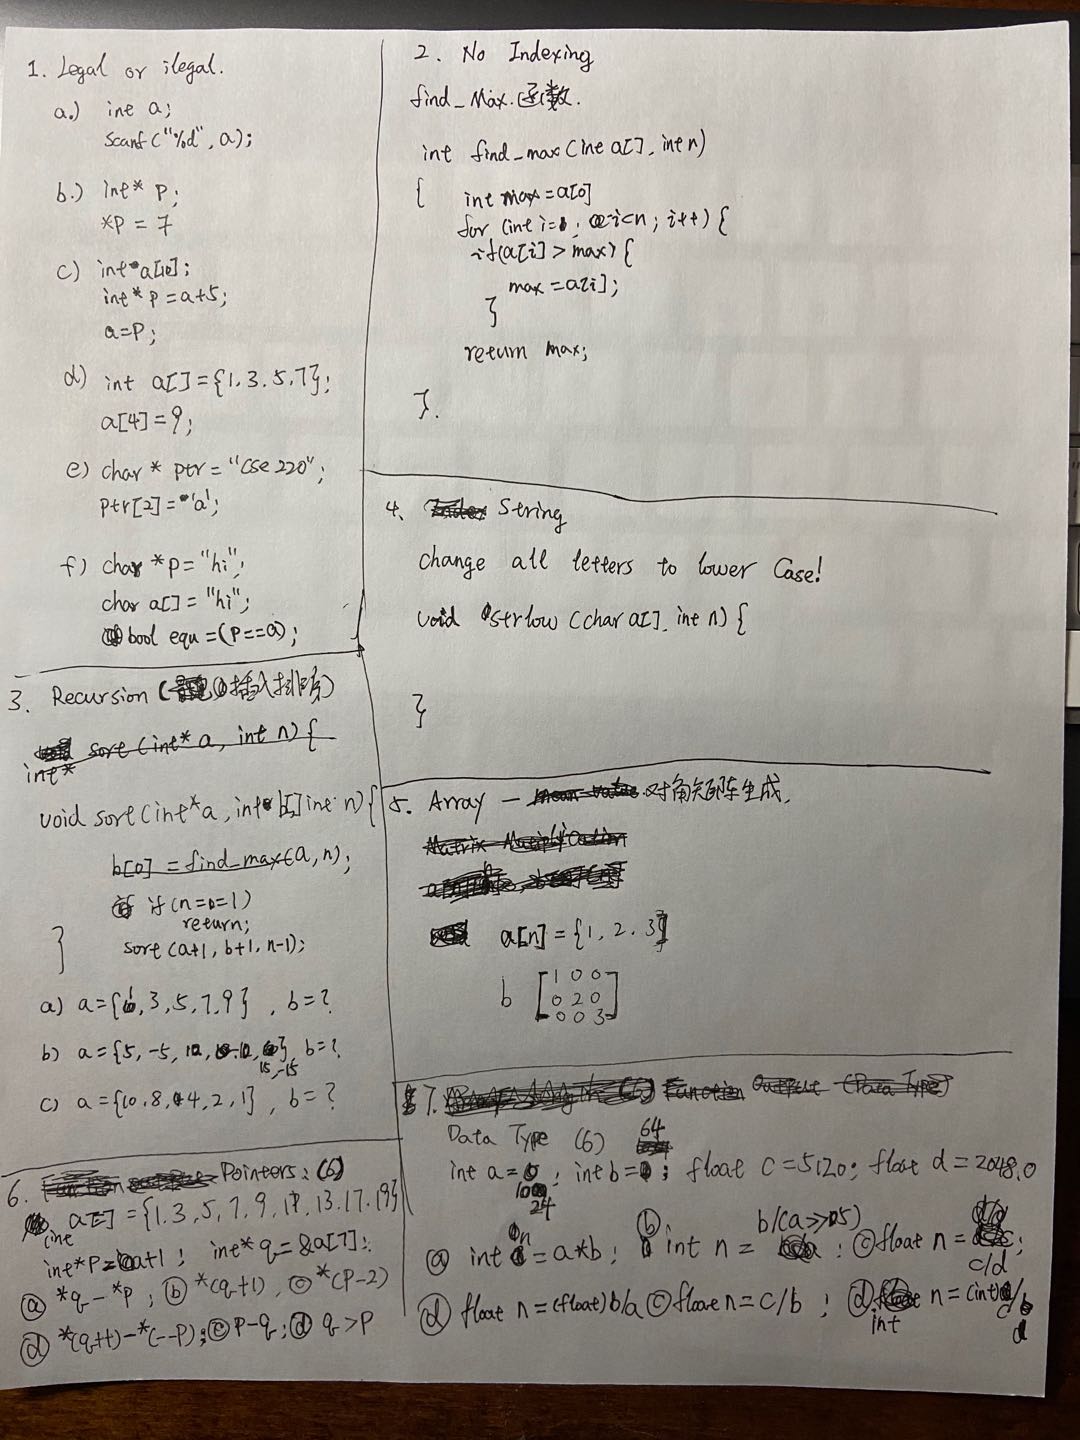 1. Legal or ilegal.
a.) int a;
scanf("%d", a);
b.) int* p;
*p = 7
c) int a[10];
int* p = a+5;
a=p;
d) int a[] = {1,3,5,7};
a[4] = 9;
e) char* ptr = "cse 220";
ptr[2] = 'a';
f) char *p = "hi";
char a[] = "hi";
bool equ = (p==a);
2. No Indexing
find_Max.函数.
int find_max(int a[], int n)
{ int max = a[0]
for (int i= ; i<n; i++) {
if(a[i] > max) {
max = a[i];
}
return max;
}.
3. Recursion (插入排序)
sort (int* a, int n) {
int*
void sort(int* a, int b[] int n) {
b[0] = find_max(a, n);
if (n==1)
return;
sort (a+1, b+1, n-1);
}
a) a={ , 3, 5, 7, 9}, b=?
b) a={5, -5, 10, -10, 15, -15}, b=?
c) a={10, 8, 4, 2, 1}, b=?
4. String
change all letters to lower Case!
void strlow (char a[], int n) {
}
5. Array — mean value 对角矩阵生成.
Matrix Multiplication
a[n] = {1, 2, 3}
b [1 0 0
0 2 0
0 0 3]
6. Pointers: (6)
int a[] = {1,3,5,7,9,11,13,17,19}
int* p = a+1; int* q = &a[7];
ⓐ *q - *p; ⓑ *(q+1), ⓒ *(p-2)
ⓓ *(q++) - *(--p); ⓒ p-q; ⓓ q>p
7. Function Output (Data Type)
Data Type (6) 64
int a = ; int b= ; float c = 5120; float d = 2048.0
1024
ⓐ int n = a*b; ⓑ int n = b/(a>>5) ⓒ float n = c/d;
ⓓ float n = (float) b/a ⓒ float n = c/b; ⓓ int n = (int) c/d